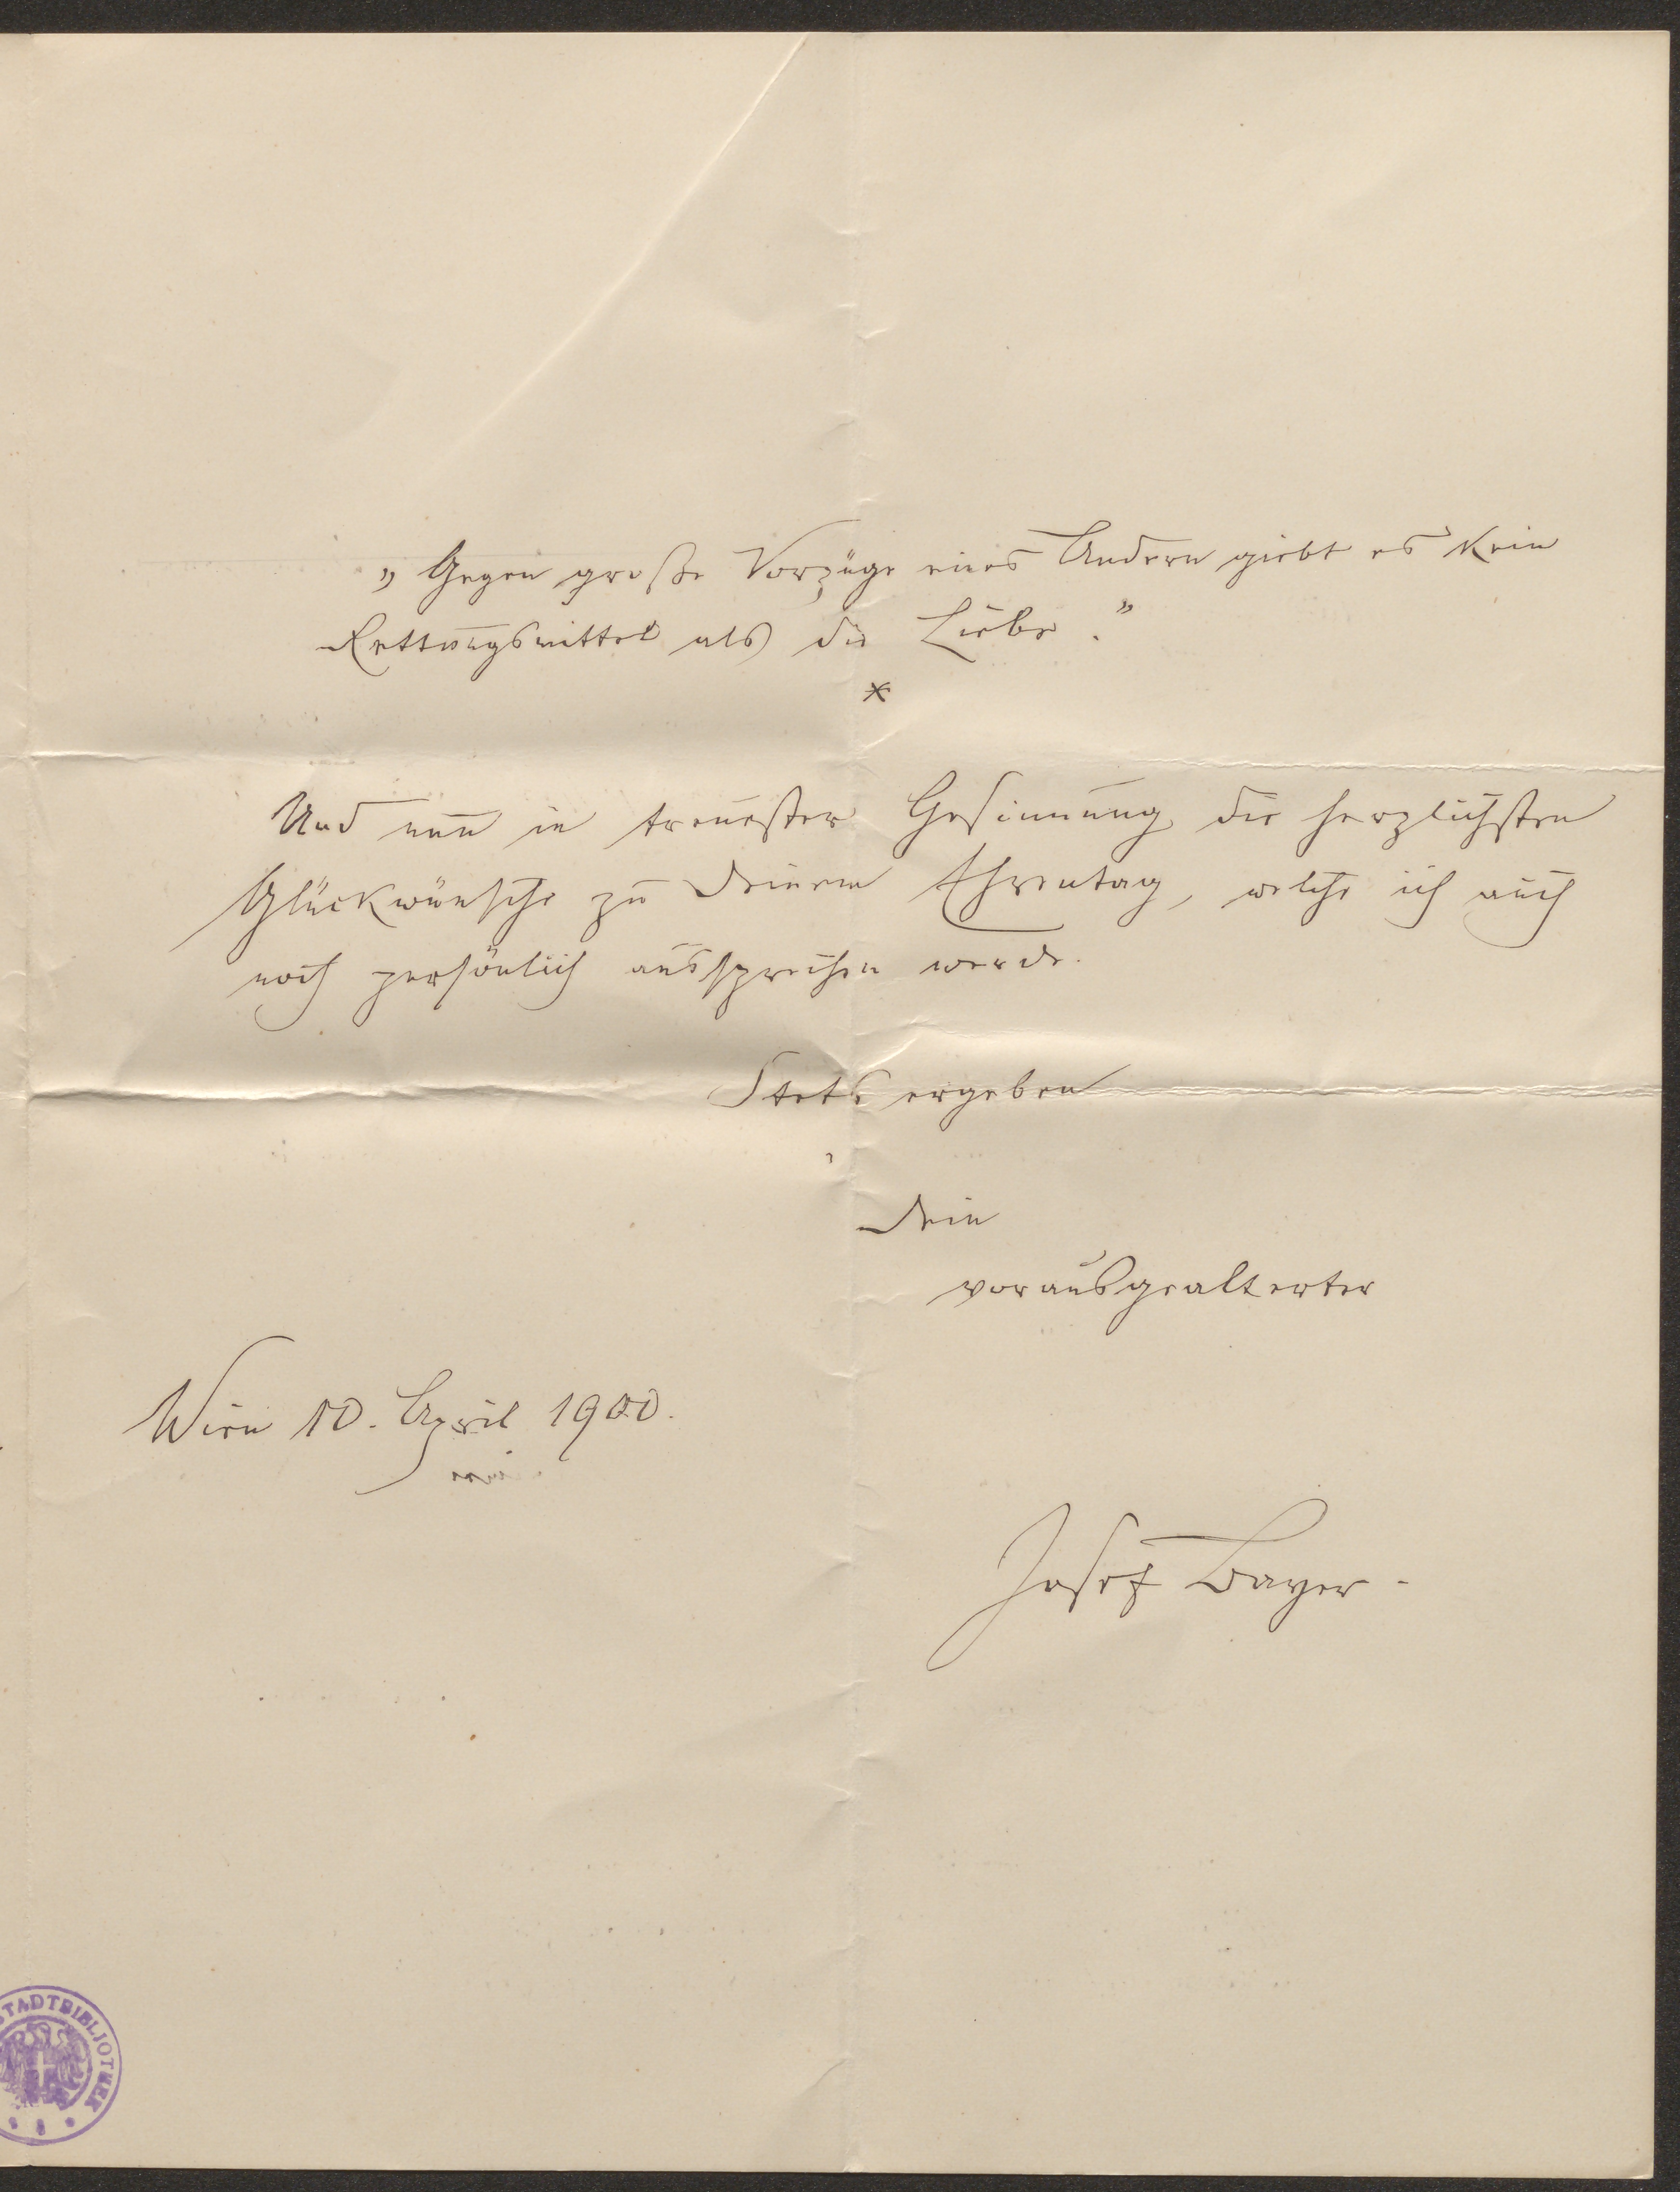 „Gegen große Vorzüge eines Andern giebt es kein
Rettungsmittel als die Liebe."
*
Und nun in treuester Gesinnung die herzlichsten
Glückwünsche zu Deinem Ehrentag, welche ich auch
noch persönlich aussprechen werde.
Stets ergeben
Dein
vorausgealterter
Wien 10. April 1900.
Josef Bayer.
STADTBIBLIOTHEK